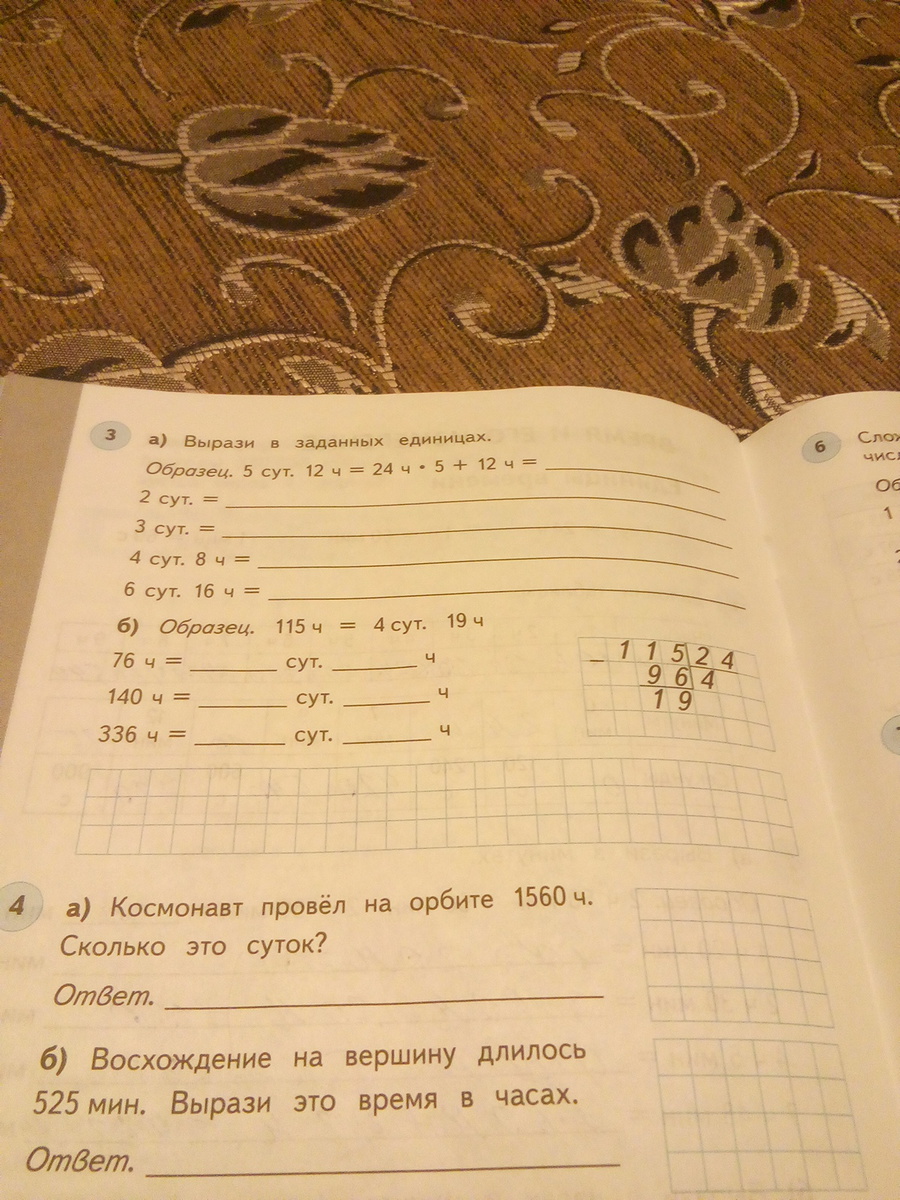 3
а) Вырази в заданных единицах.
Образец. 5 сут. 12 ч = 24 ч • 5 + 12 ч =
2 сут. =
3 сут. =
4 сут. 8 ч =
6 сут. 16 ч =
б) Образец. 115 ч = 4 сут. 19 ч
76 ч = сут. ч
140 ч = сут. ч
336 ч = сут. ч
– 1 1 5 2 4
9 6 4
1 9
4
а) Космонавт провёл на орбите 1560 ч.
Сколько это суток?
Ответ.
б) Восхождение на вершину длилось
525 мин. Вырази это время в часах.
Ответ.
6
1